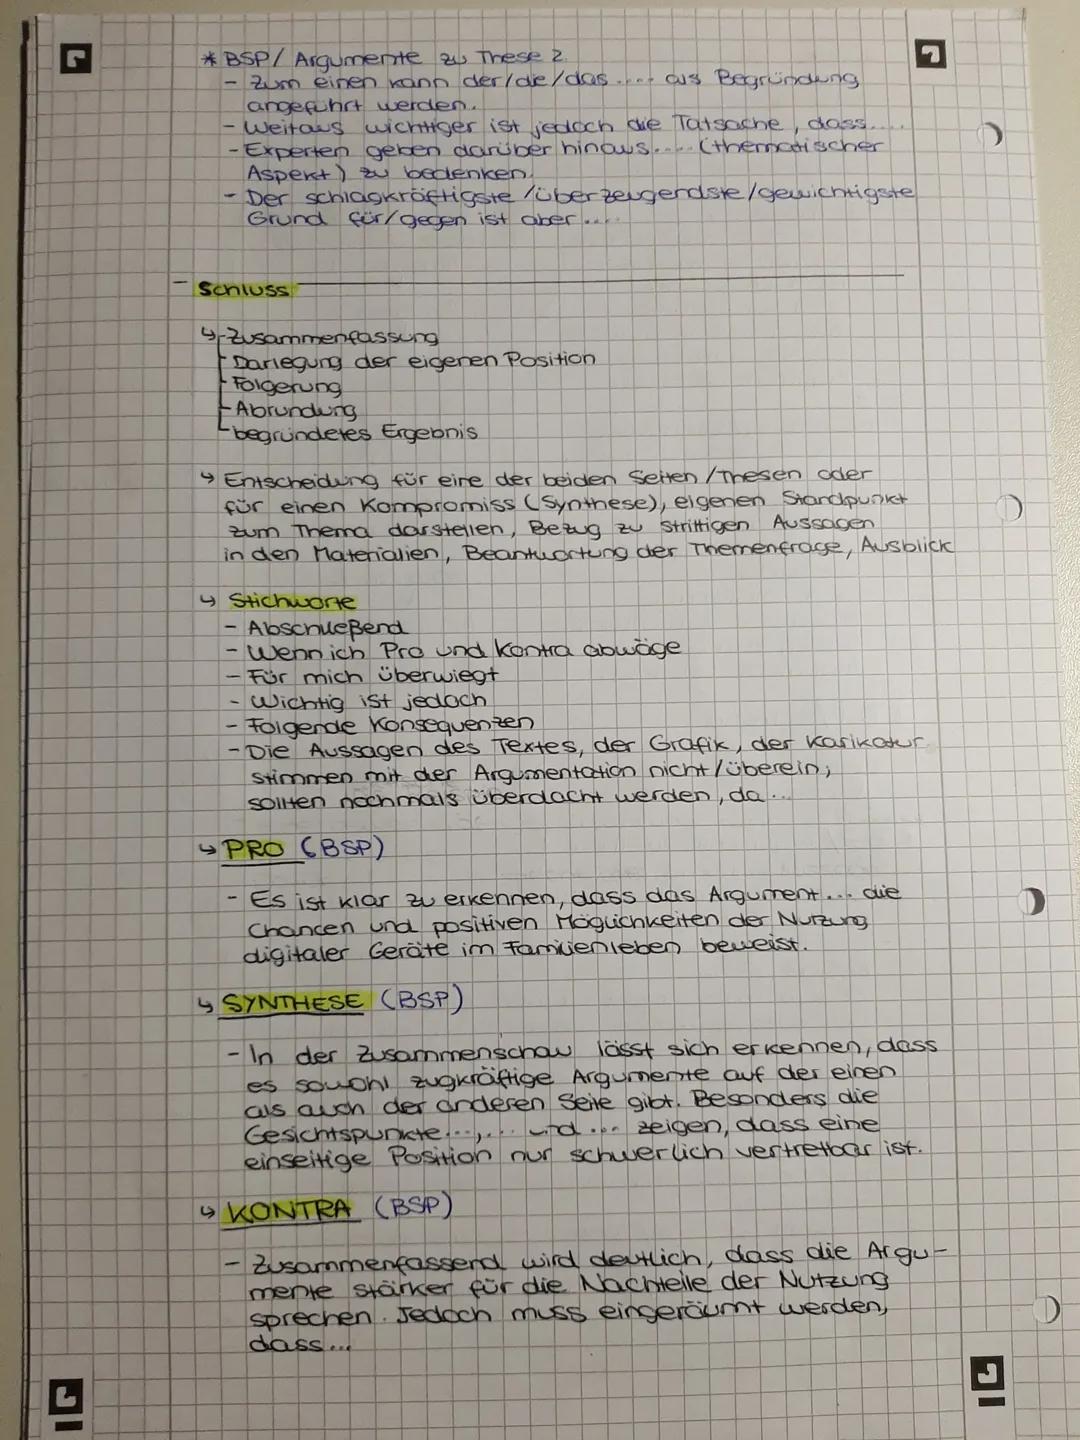 * BSP/ Argumente zu These 2
- Zum einen kann der/die/das .... als Begründung
angeführt werden.
- Weitaus wichtiger ist jedoch die Tatsache, dass....
- Experten geben darüber hinaus.... (thematischer
Aspekt) zu bedenken.
- Der schlagkräftigste/überzeugendste/gewichtigste
Grund für/gegen ist aber....
- Schluss
↳ - Zusammenfassung
- Darlegung der eigenen Position
- Folgerung
- Abrundung
- begründetes Ergebnis
↳ Entscheidung für eine der beiden Seiten/Thesen oder
für einen Kompromiss (Synthese), eigenen Standpunkt
zum Thema darstellen, Bezug zu strittigen Aussagen
in den Materialien, Beantwortung der Themenfrage, Ausblick
↳ Stichworte
- Abschließend
- Wenn ich Pro und Kontra abwäge
- Für mich überwiegt
- Wichtig ist jedoch
- Folgende Konsequenzen
- Die Aussagen des Textes, der Grafik, der Karikatur
stimmen mit der Argumentation nicht/überein;
sollten nochmals überdacht werden, da...
↳ PRO (BSP)
- Es ist klar zu erkennen, dass das Argument... die
Chancen und positiven Möglichkeiten der Nutzung
digitaler Geräte im Familienleben beweist.
↳ SYNTHESE (BSP)
- In der Zusammenschau lässt sich erkennen, dass
es sowohl zugkräftige Argumente auf der einen
als auch der anderen Seite gibt. Besonders die
Gesichtspunkte...,... und ... zeigen, dass eine
einseitige Position nur schwerlich vertretbar ist.
↳ KONTRA (BSP)
- Zusammenfassend wird deutlich, dass die Argu-
mente stärker für die Nachteile der Nutzung
sprechen. Jedoch muss eingeräumt werden,
dass...